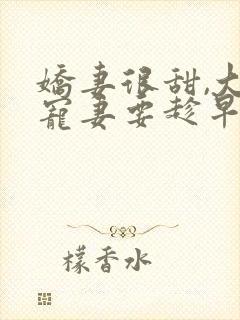 嬌妻很甜,大
寵妻要趁早
檬香水